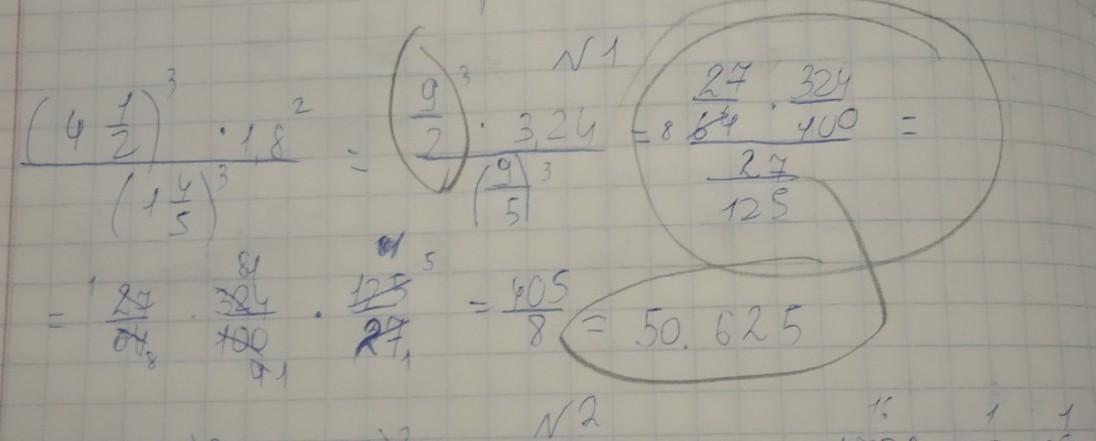 N 1
(4 1/2)^3 · 1,8^2 / (1 4/5)^3 = (9/2)^3 · 3,24 / (9/5)^3 = 8 27/64 · 324/100 / 27/125 =
= 27/64 · 324/100 · 125/27 = 405/8 = 50.625
N 2
16 1 1